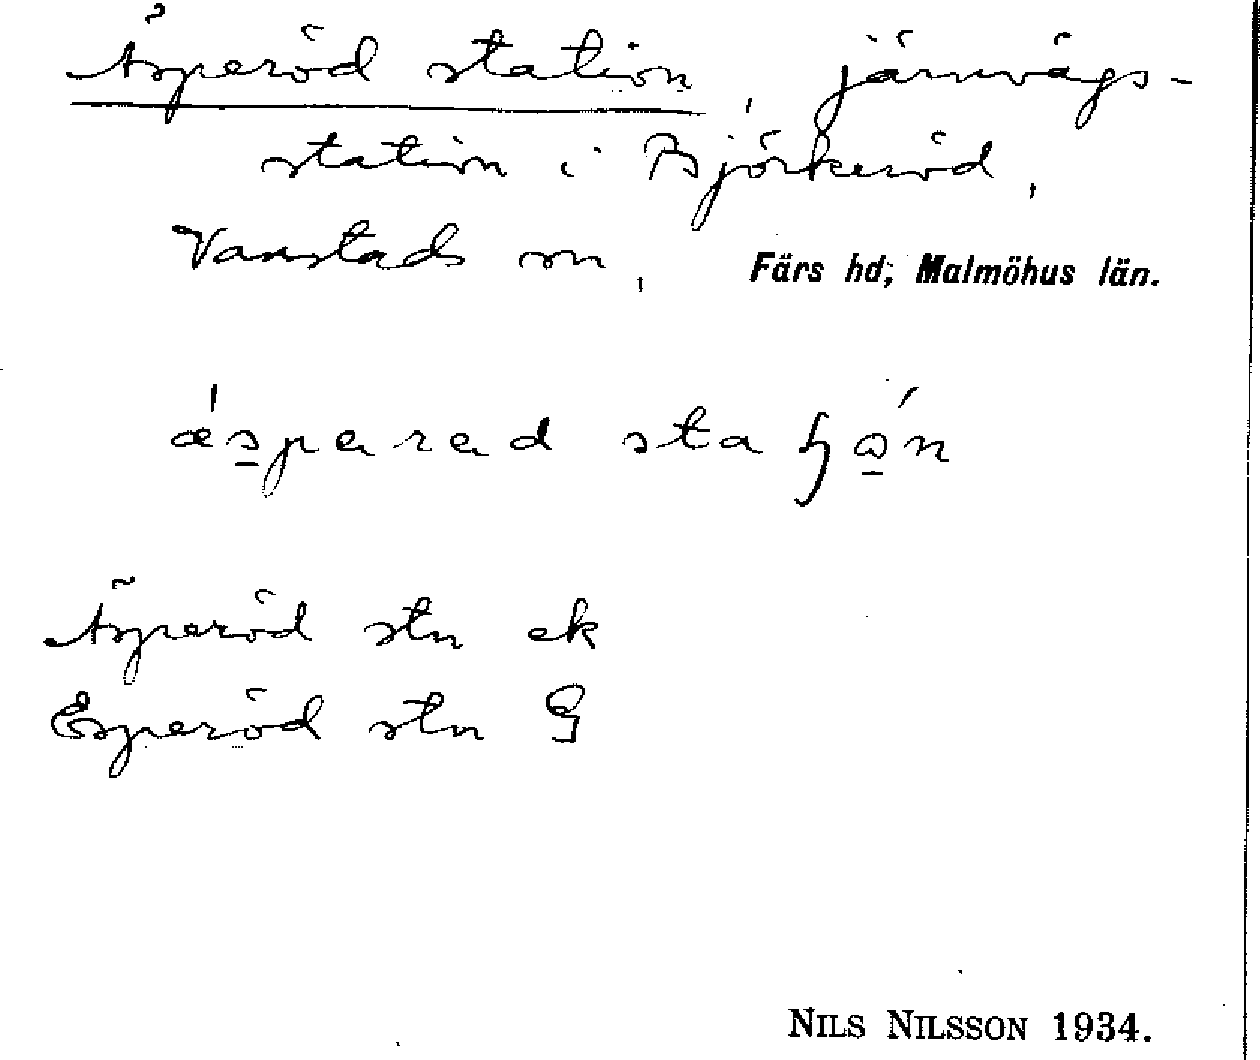 Äsperöd station, järnvägs-
station i Björkeröd,
Vanstads sn, Färs hd, Malmöhus län.
ǽsparad staɧǫ́n
Äsperöd stn ek
Esperöd stn G
NILS NILSSON 1934.